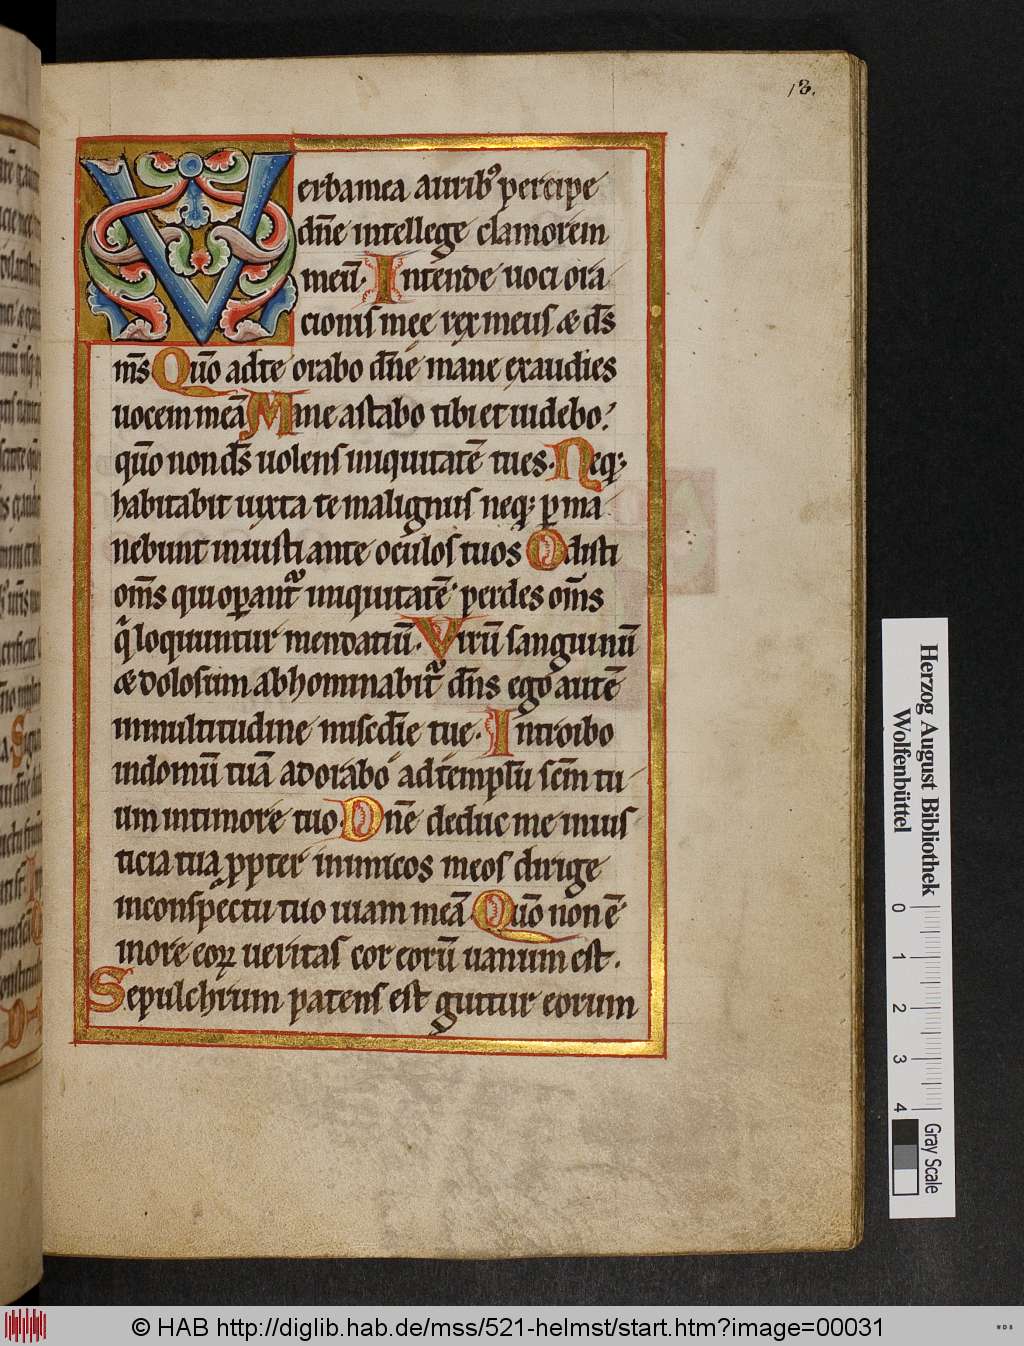 13.
Verba mea aurib⁹ percipe
dn̄e intellege clamorem
meū. Intende uoci ora
cionis mee rex meus & ds̄
ms̄ Quō ad te orabo dn̄e mane exaudies
uocem meā Mane astabo tibi et uidebo:
quō non ds̄ uolens iniquitatē tu es. Neq;
habitabit iuxta te malignus neq; ꝑma
nebunt iniusti ante oculos tuos Odisti
om̄s qui oꝑant᷑ iniquitatē perdes om̄s
q̄ loquuntur mendatiū. Virū sanguinū
& dolosum abhominabit᷑ dn̄s ego autē
in multitudine misc̄die tue. Introibo
in domū tuā adorabo ad templū sc̄m tu
um in timore tuo. Dn̄e deduc me in ius
ticia tua ꝓpter inimicos meos dirige
in conspectu tuo uiam meā Quō non ē
in ore eoꝝ ueritas cor eorū uanum est.
Sepulchrum patens est guttur eorum
Herzog August Bibliothek
Wolfenbüttel
0 1 2 3 4
Gray Scale
© HAB http://diglib.hab.de/mss/521-helmst/start.htm?image=00031